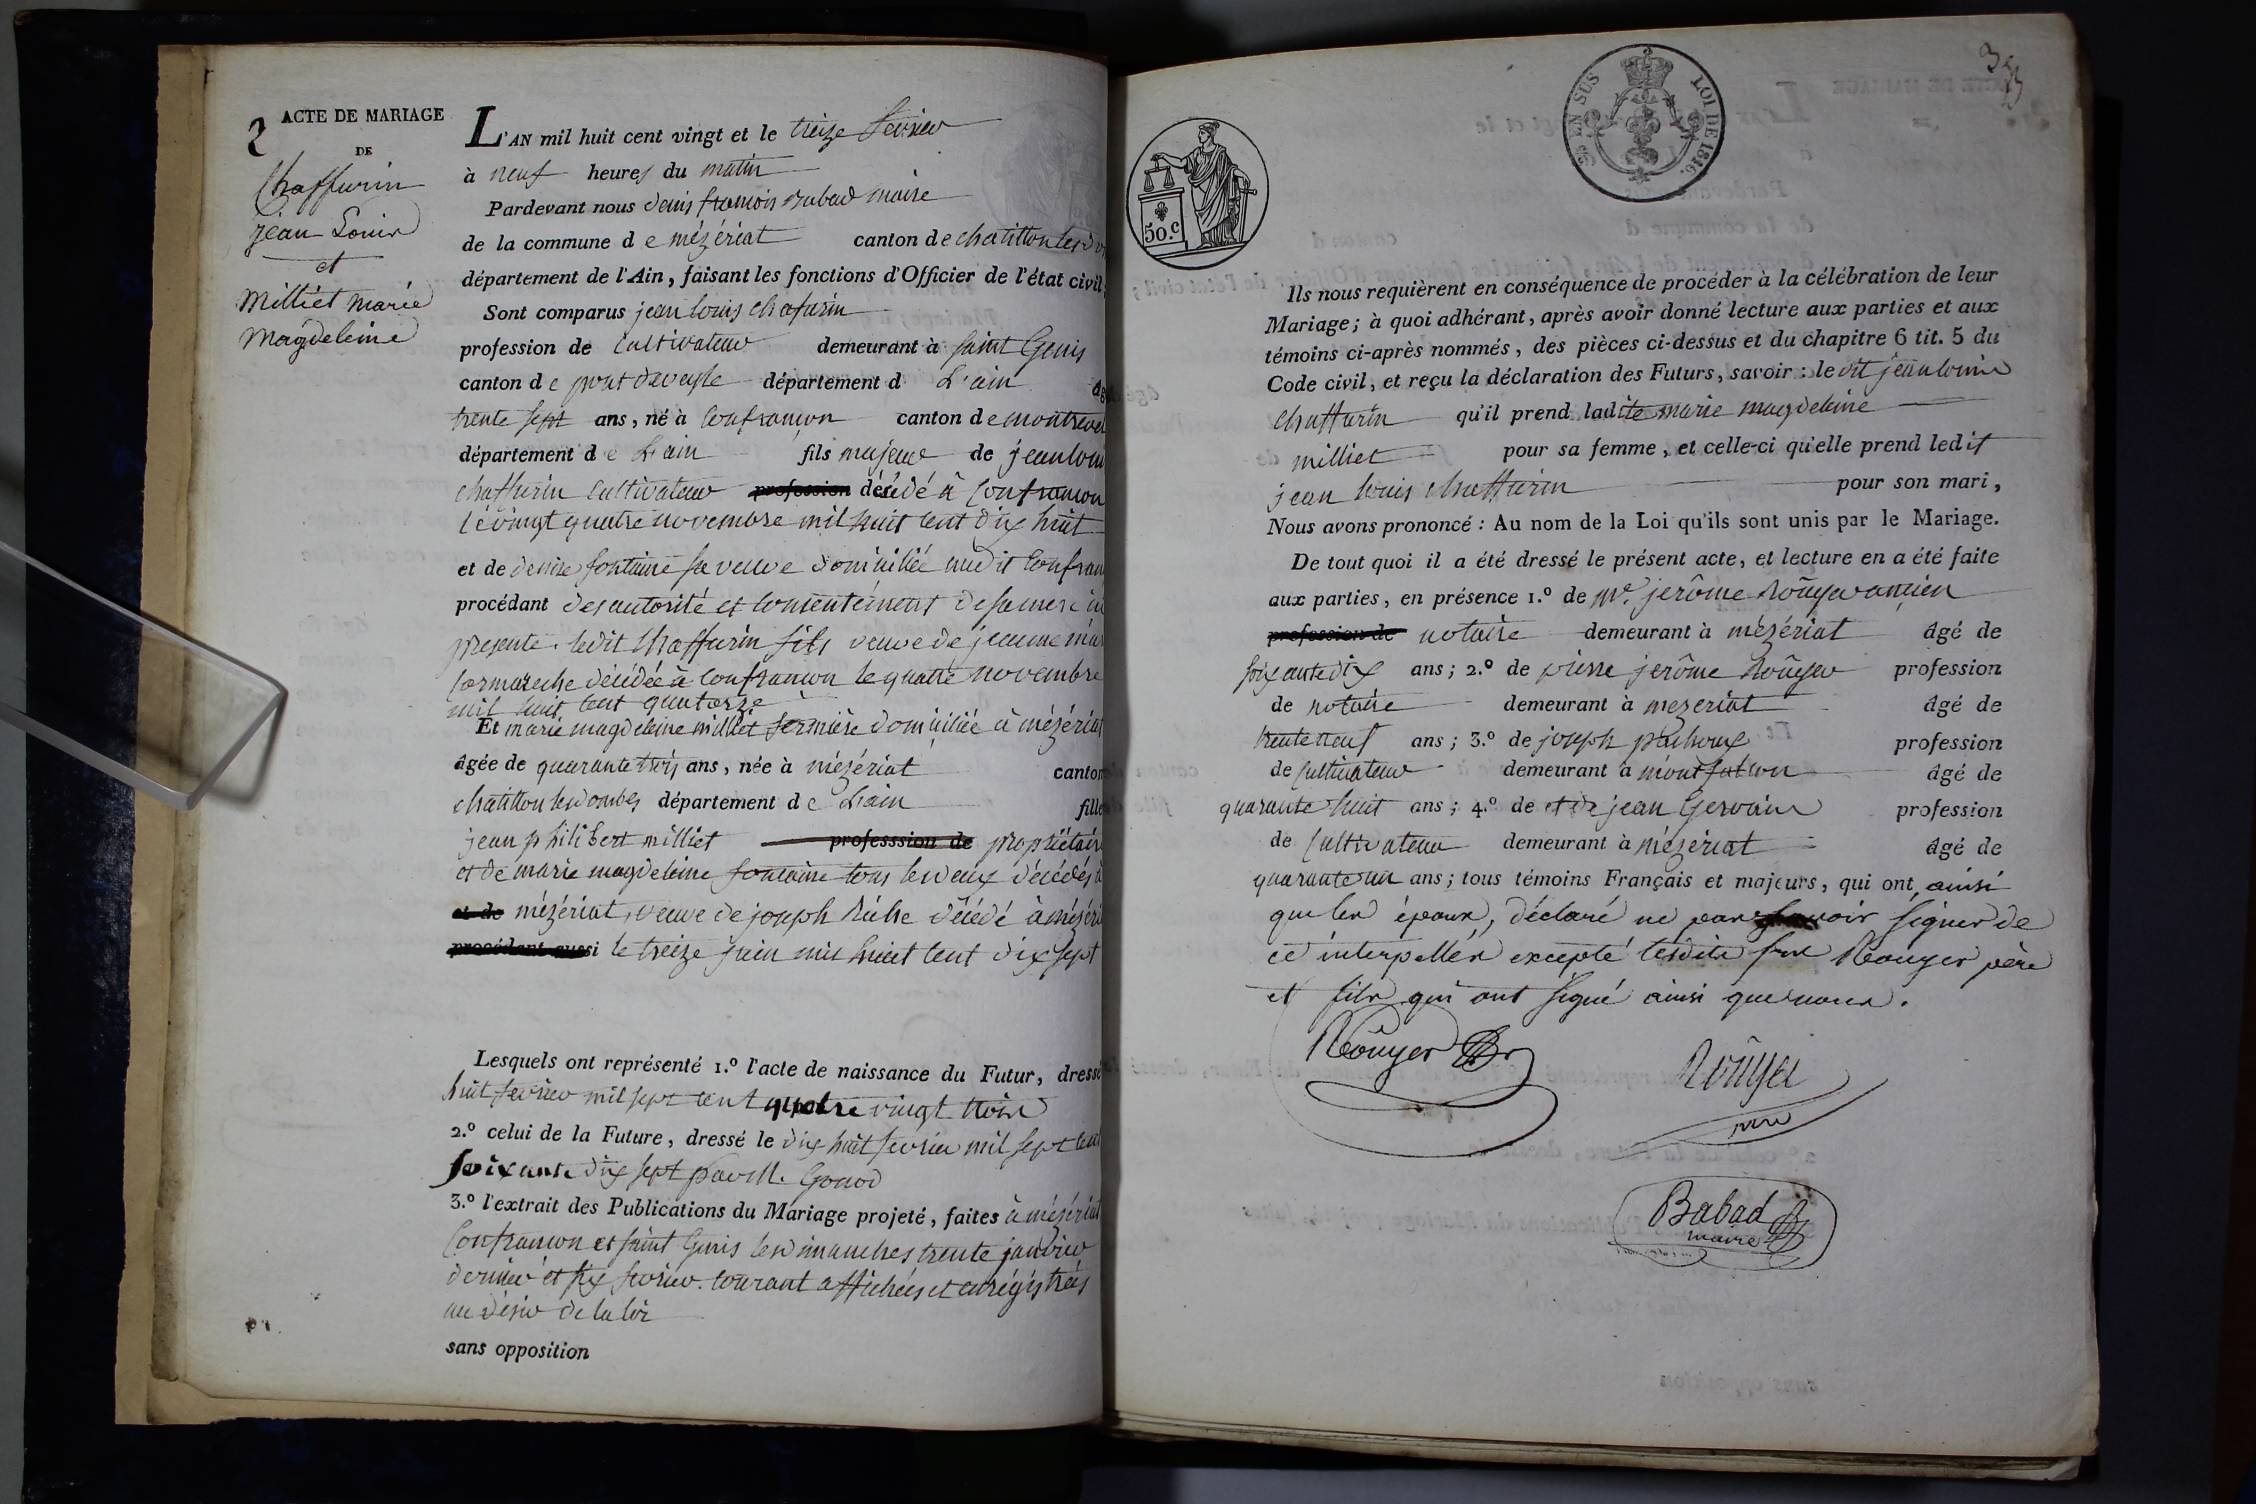 2
ACTE DE MARIAGE
DE
Chaffurin
jean Louis
et
milliet marie
magdeleine
L'AN mil huit cent vingt et le treize fevrier
à neuf heures du matin
Pardevant nous denis francois Babad maire
de la commune d e mézériat canton de chatillon les d
département de l'Ain, faisant les fonctions d'Officier de l'état civil;
Sont comparus jean louis chafurin
profession de cultivateur demeurant à saint Genis
canton d e pont deveyle département d L'ain âgé
trente sept ans, né à confrancon canton de montrevel
département d e L'ain fils majeur de jean louis
chaffurin cultivateur profession décédé à Confrancon
le vingt quatre novembre mil huit cent dix huit
et de denise fontaine sa veuve domiciliée audit confran
procédant des autorité et consentement de sa mere ici
presente. ledit Chaffurin fils veuve de jeanne mar
cormareche décédée à confrancon le quatre novembre
mil huit cent quatorze
Et marie magdeleine milliet fermière domiciliée à mézériat
âgée de quarante trois ans, née à mézériat canton
chatillon les dombes département d e L'ain fille
jean philibert milliet professsion de propriétaire
et de marie magdeleine fontaine tous les deux décédés à
et de mézériat, veuve de joseph Riche décédé à mézéri
procédant aussi le treize juin mil huit cent dix sept
Lesquels ont représenté 1.º l'acte de naissance du Futur, dressé
huit fevrier mil sept cent quatre vingt trois
2.º celui de la Future, dressé le dix huit fevrier mil sept cent
soixante dix sept par M. Gonod
3.º l'extrait des Publications du Mariage projeté, faites à mézériat
Confrancon et saint Genis les dimanches trente janvier
dernier et six fevrier courant affichées et enrégistrées
au désir de la loi
sans opposition
EN SUS LOI DE 1816.
50.c
Ils nous requièrent en conséquence de procéder à la célébration de leur
Mariage; à quoi adhérant, après avoir donné lecture aux parties et aux
témoins ci-après nommés, des pièces ci-dessus et du chapitre 6 tit. 5 du
Code civil, et reçu la déclaration des Futurs, savoir : le dit jean louis
chaffurin qu'il prend ladite marie magdeleine
milliet pour sa femme, et celle-ci qu'elle prend ledit
jean louis chaffurin pour son mari,
Nous avons prononcé : Au nom de la Loi qu'ils sont unis par le Mariage.
De tout quoi il a été dressé le présent acte, et lecture en a été faite
aux parties, en présence 1.º de mr. jerôme Roûyer ancien
profession de notaire demeurant à mézériat âgé de
soixante dix ans; 2.º de pierre jerôme Roûyer profession
de notaire demeurant à mezeriat âgé de
trente neuf ans; 3.º de joseph profession
de cultivateur demeurant à montfalcon âgé de
quarante huit ans; 4.º de et de jean Gervais profession
de Cultivateur demeurant à mézériat âgé de
quarante un ans; tous témoins Français et majeurs, qui ont ainsi
que les époux, déclaré ne pas savoir signer de
ce interpellés excepté lesdits srs Rouyer père
et fils qui ont signé ainsi que nous.
Roûyer
Roûyer
père
Babad
maire